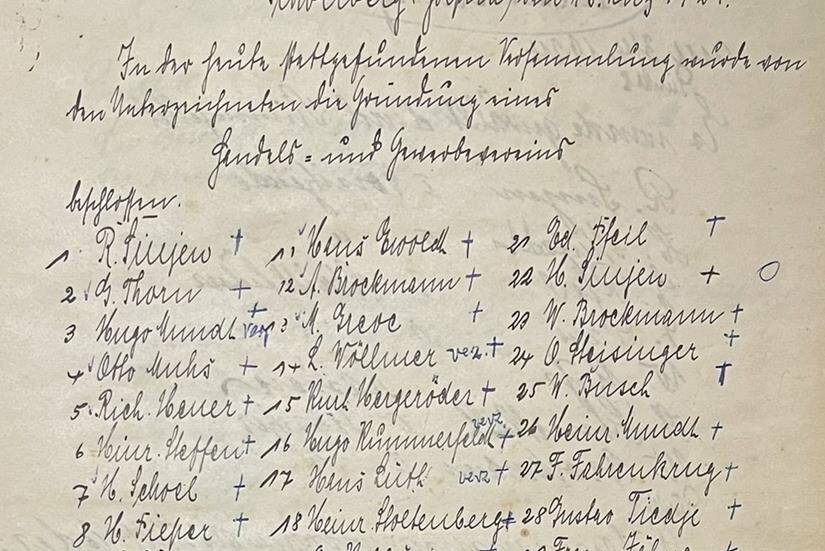 In der heute stattgefundenen Versammlung wurde von
den Unterzeichneten die Gründung eines
Handels- und Gewerbevereins
beschlossen.
1 R. Sinjen + 11 Hans Ewoldt + 21 Ed. Pfeil +
2 G. Thorn + 12 A. Brockmann + 22 H. Sinjen + O
3 Hugo Mundt verz + 13 M. Greve + 23 W. Brockmann +
4 Otto Muhs + 14 L. Völlmer verz. + 24 O. Steisinger +
5 Rich. Heuer + 15 Kurt Hergeröder + 25 W. Busch +
6 Heinr. Steffen + 16 Hugo Kummerfeldt verz + 26 Heinr. Mundt +
7 H. Schoel + 17 Hans Lüth verz + 27 F. Fahrenkrug +
8 H. Fieper + 18 Heinr. Stoltenberg + 28 Gustav Tiedje +